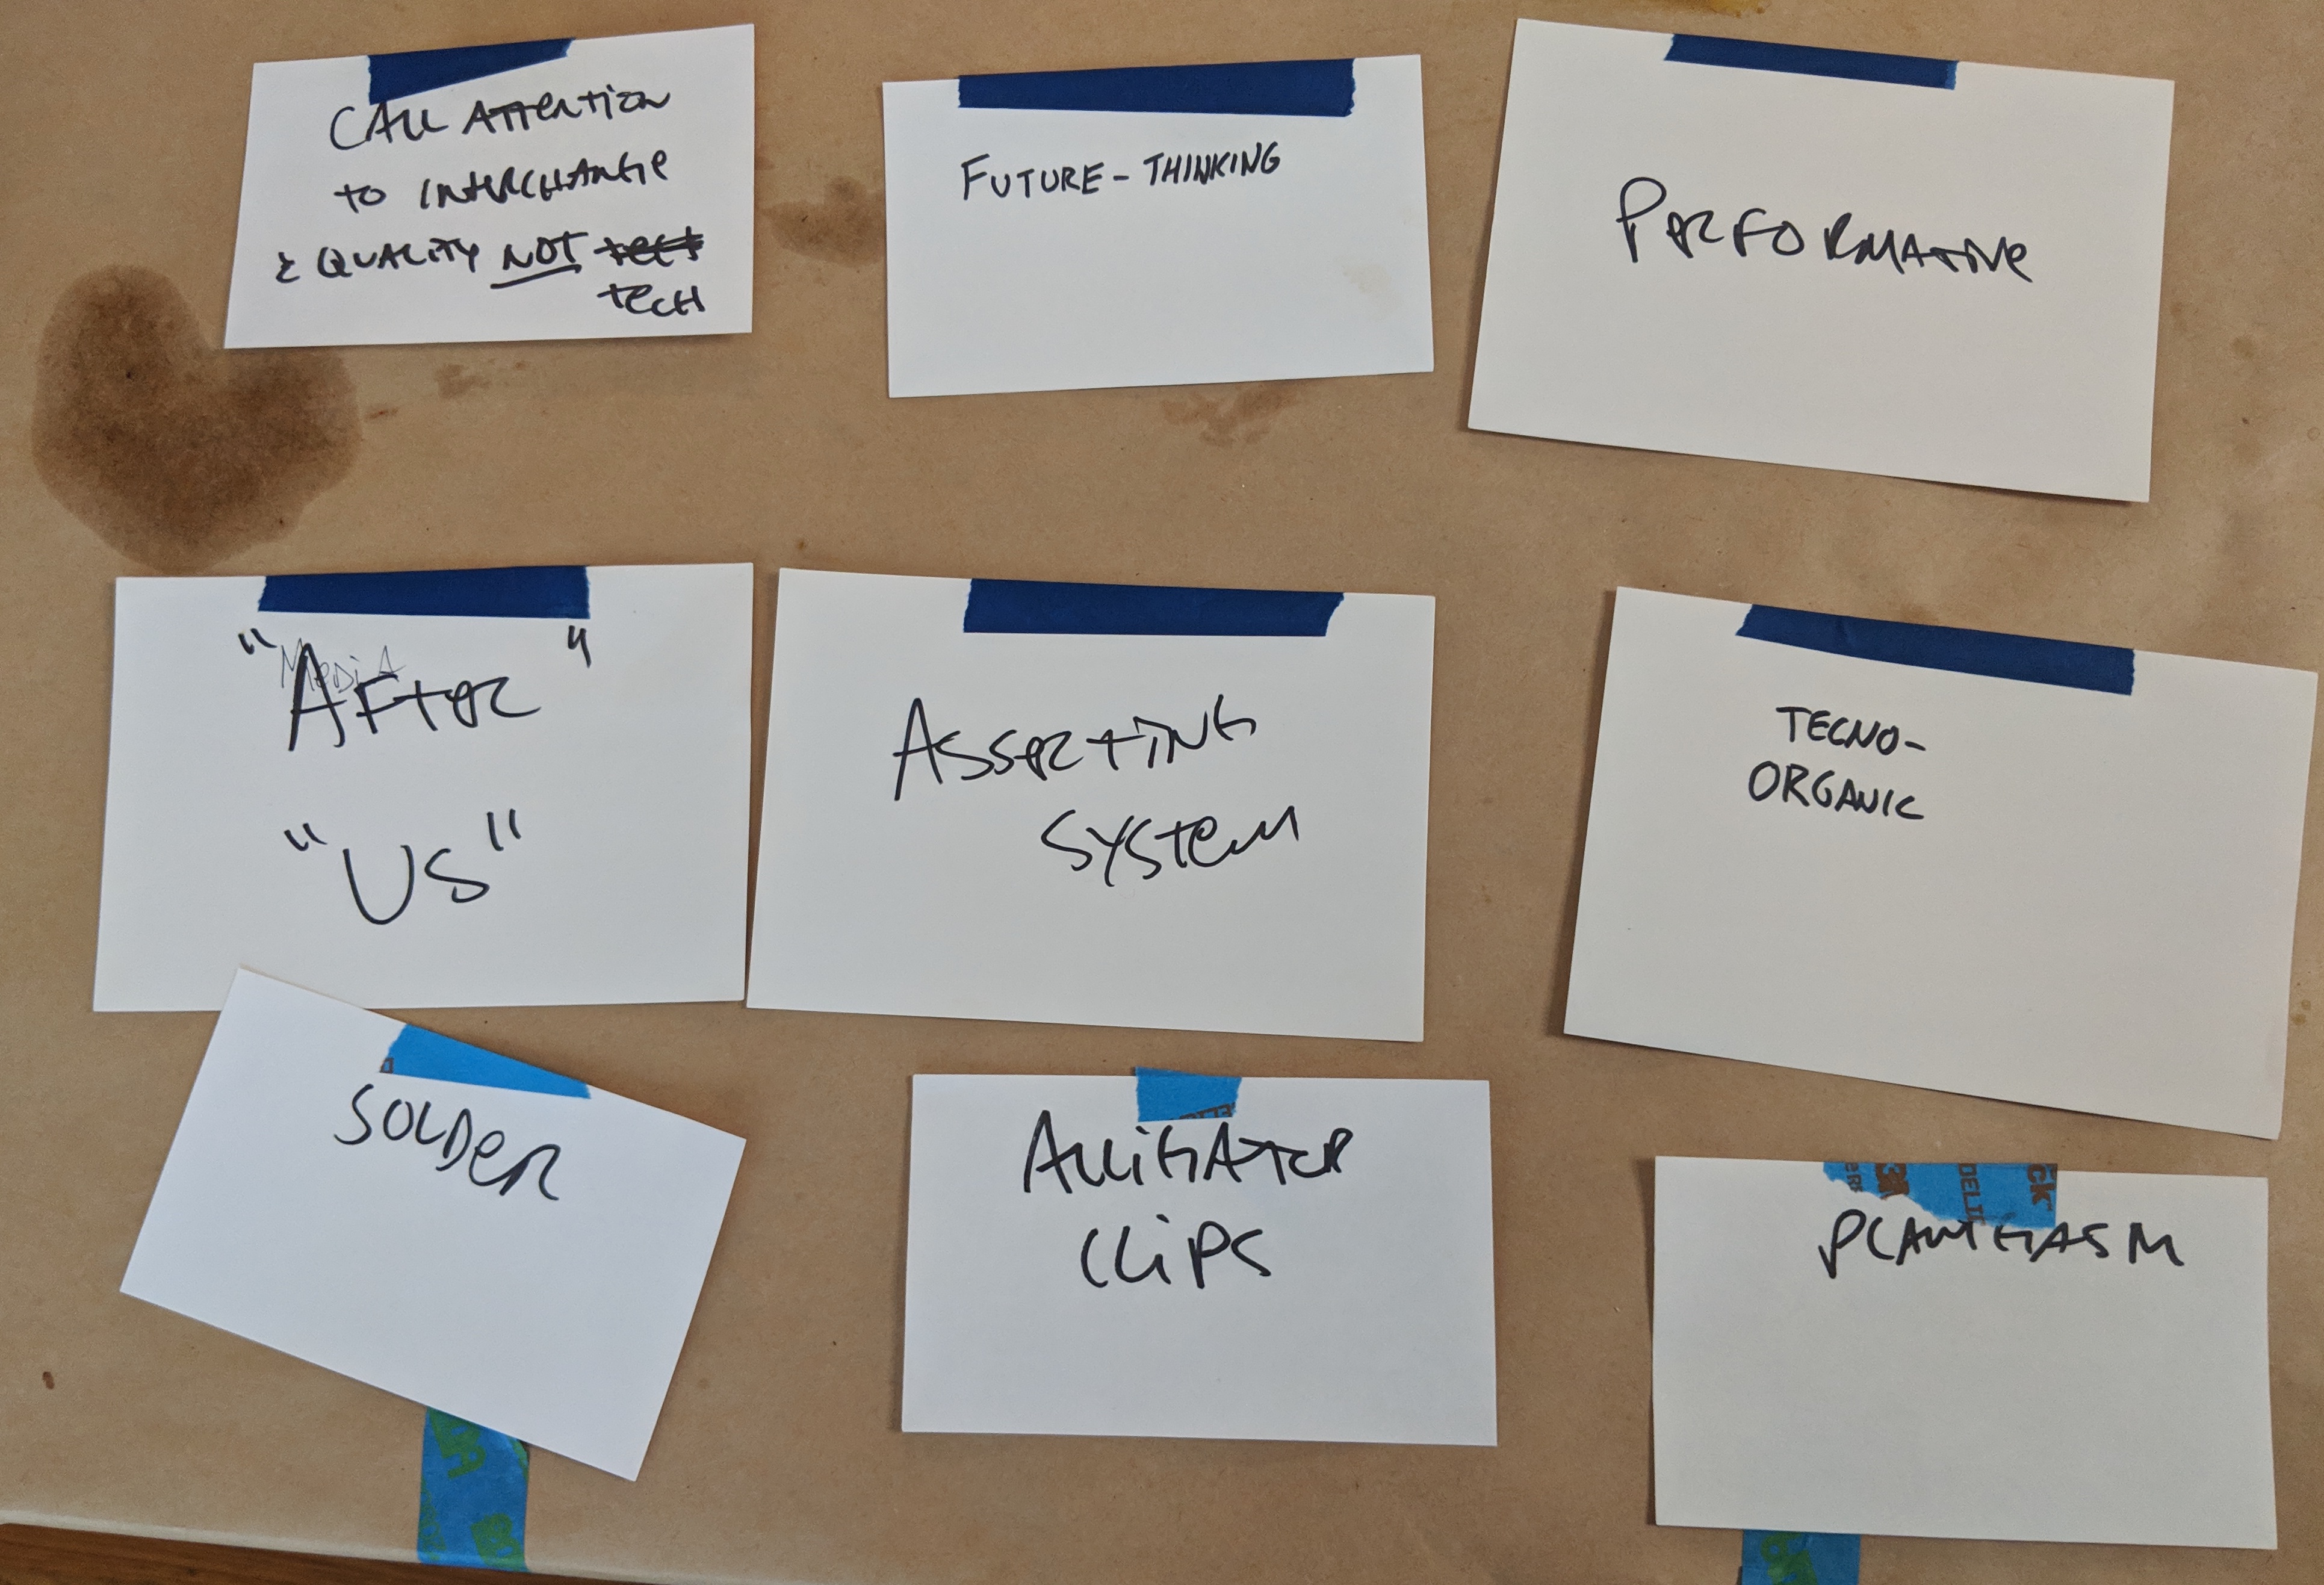 CALL ATTENTION
TO INTERCHANGE
& QUALITY NOT
TECH
FUTURE-THINKING
PERFORMATIVE
MEDIA
"AFTER"
"US"
ASSERTING
SYSTEM
TECNO-
ORGANIC
SOLDER
ALLIGATOR
CLIPS
PLANTGASM